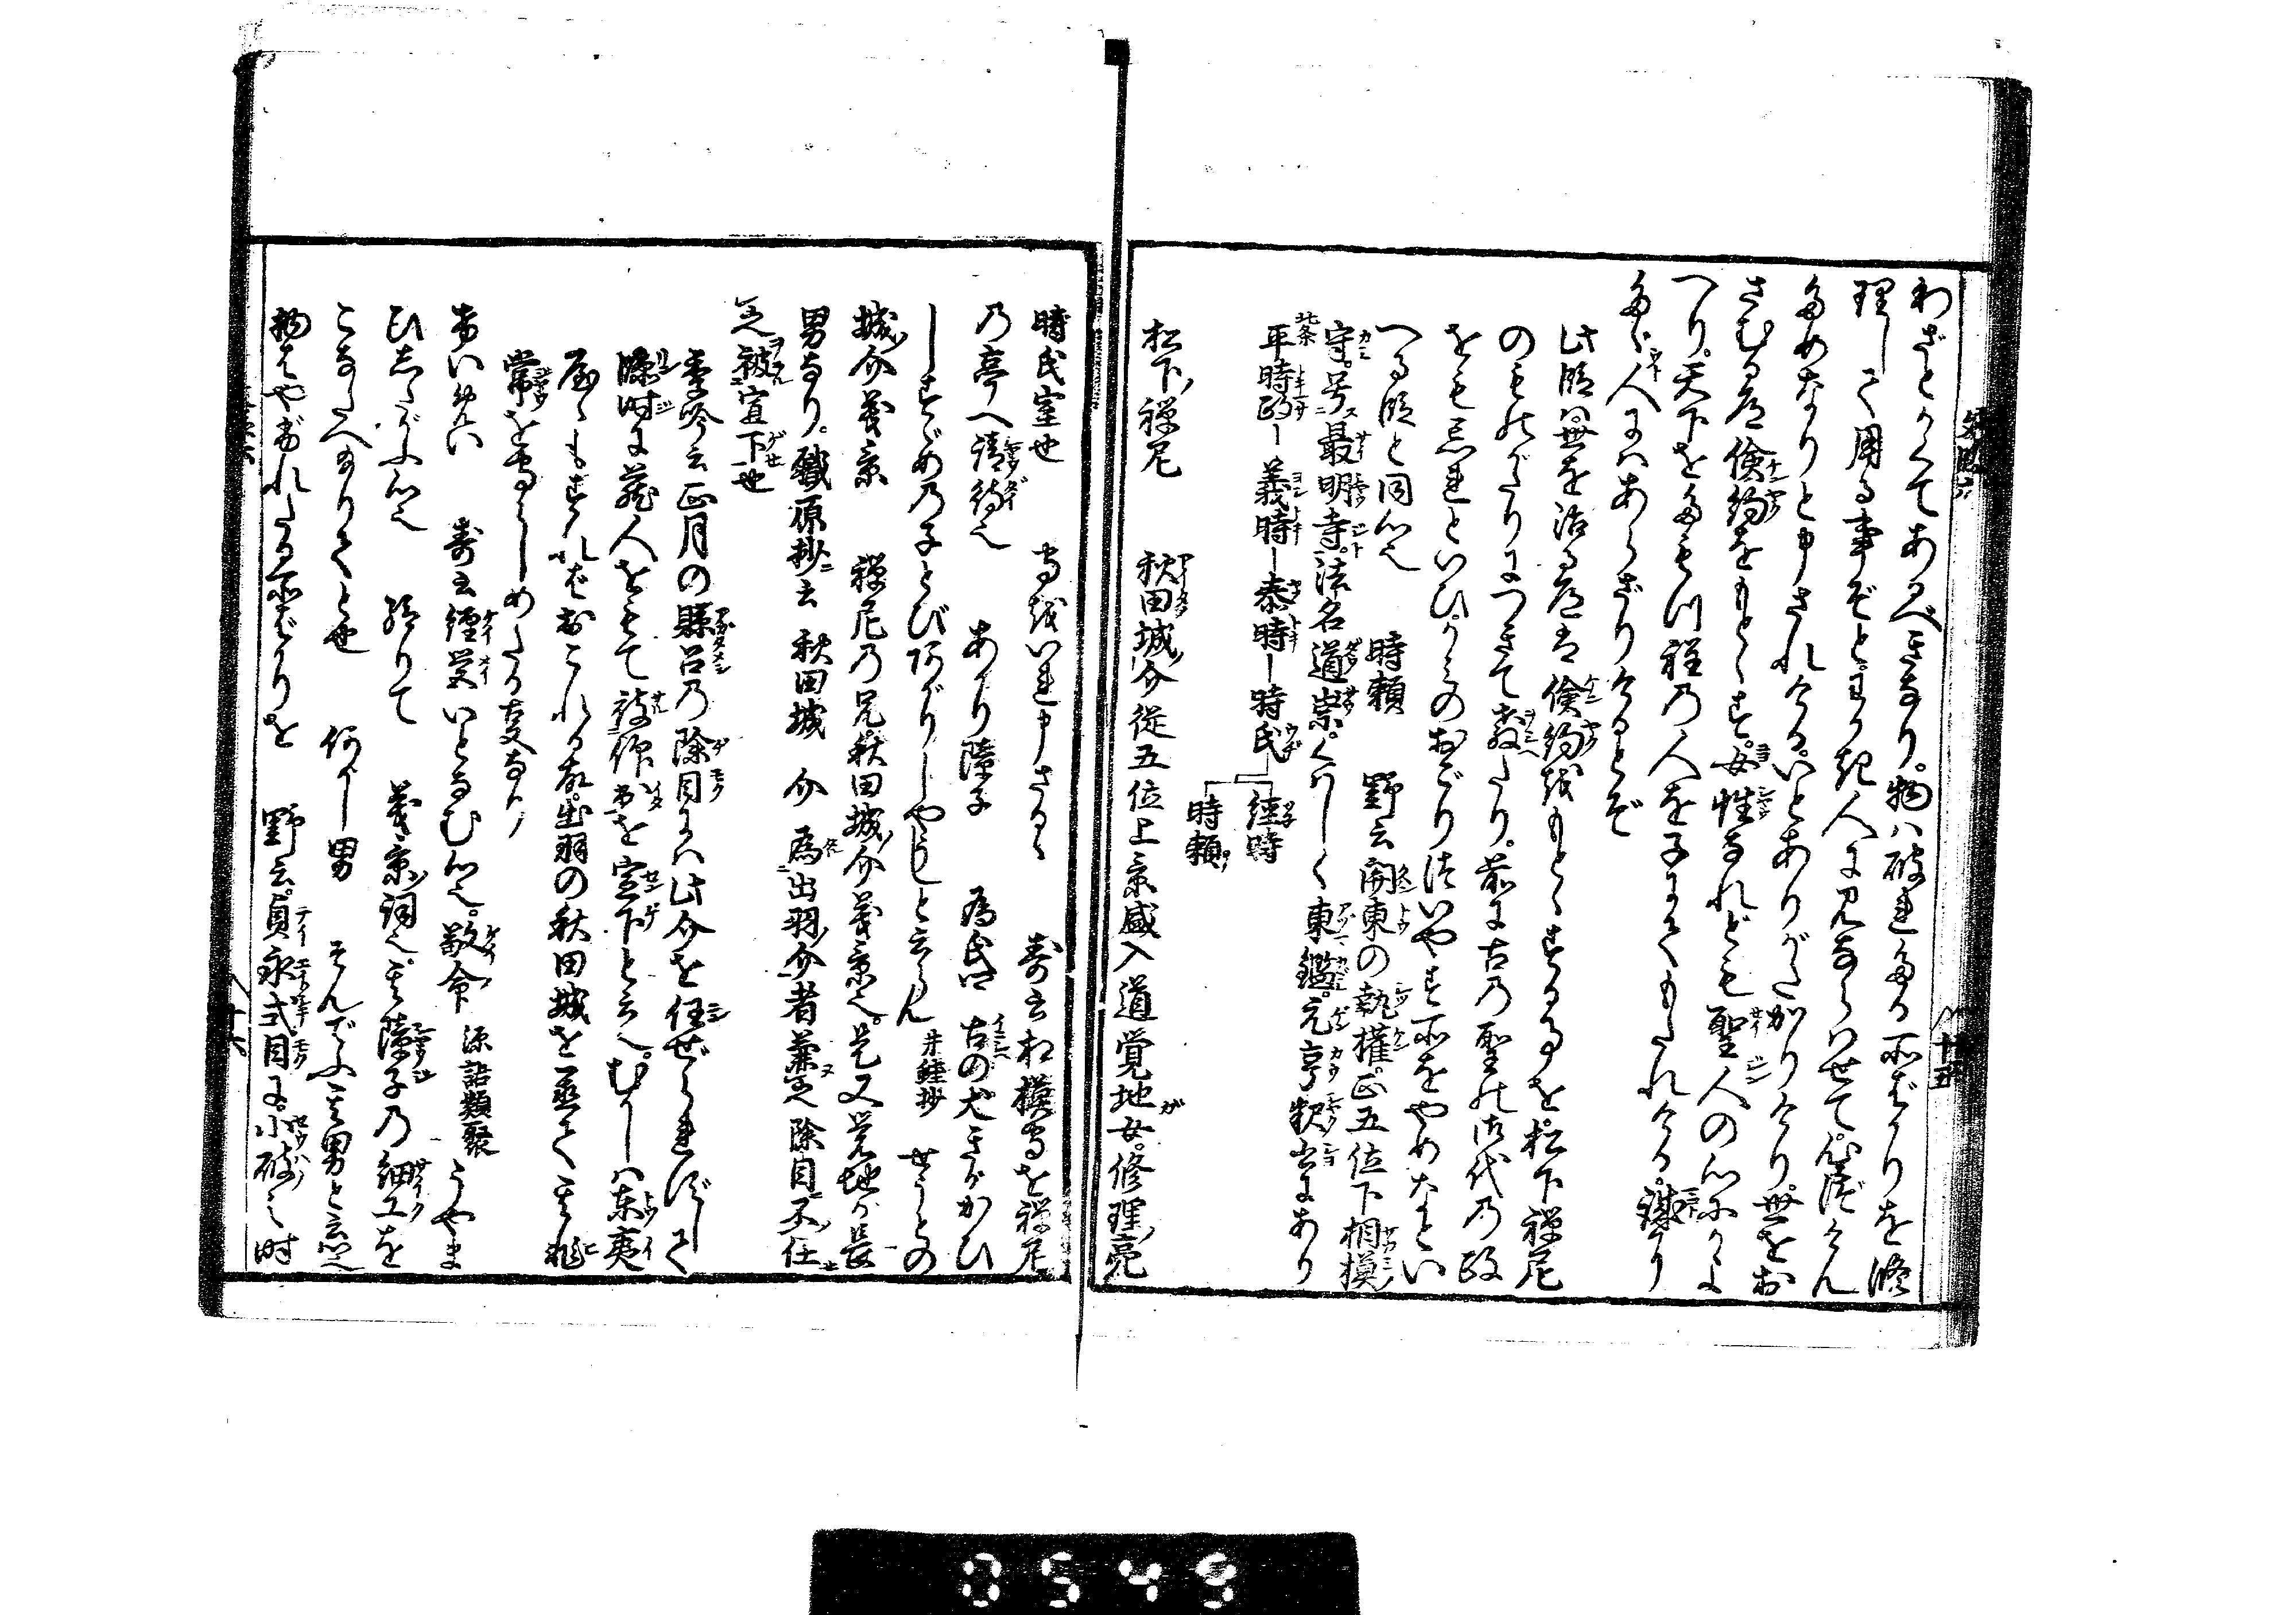 わざとかくてあるべきなり。物は破れたる所ばかりを修
理して用る事ぞと。わかき人に見ならはせて。心づけん
ためなりと申されける。いとありがたかりけり。世をお
さむる道倹約をもとゝす。女性なれども聖人の心にかよ
へり。天下をたもつ程の人を子にてもたれける。誠に
たゞ人にはあらざりけるとぞ
此段は世を治る道は倹約をもとゝする事を。松下禅尼
のものがたりにつきて教たり。前に古の聖の御代の政
をも忘れといひ。かみのおごりついやす所をやめなどい
へる段と同心也
時頼　野云関東の執権。正五位下相模
守。号最明寺。法名道崇。くはしく東鑑。元亨釈書にあり
北条
平時政―義時―泰時―時氏
経時
時頼
松下禅尼　秋田城介従五位上景盛入道覚地女。修理亮
時氏室也　守をいれ申さるゝ　寿云相模守を禅尼
の亭へ請待也　あかり障子　為氏
しすゞめの子とび
城介義景　禅尼の兄秋田城介義景也。是又覚地が長
男なり。職原抄云　秋田城　介　為出羽介者兼之除目不任
之被宣下也
季吟云正月の縣召の除目には此介を任ぜられずして
臨時に蔵人をもて被仰出を宣下と云也。むかしは東夷
屋ゝもすればおこれる故。出羽の秋田城を立て其非
常をまもらしめたる支なり
けいめい　寿云経営いとなむ心也。敬命　源語類聚　うやま
ひしたがふ心也　給りて　義景詞也。其障子の細工を
こなたへ給りてと也　何がし男　そんでふ其男と云心也
物はやぶれたる所ばかりを　野云。貞永式目に。小破之時
十五
十六
0549